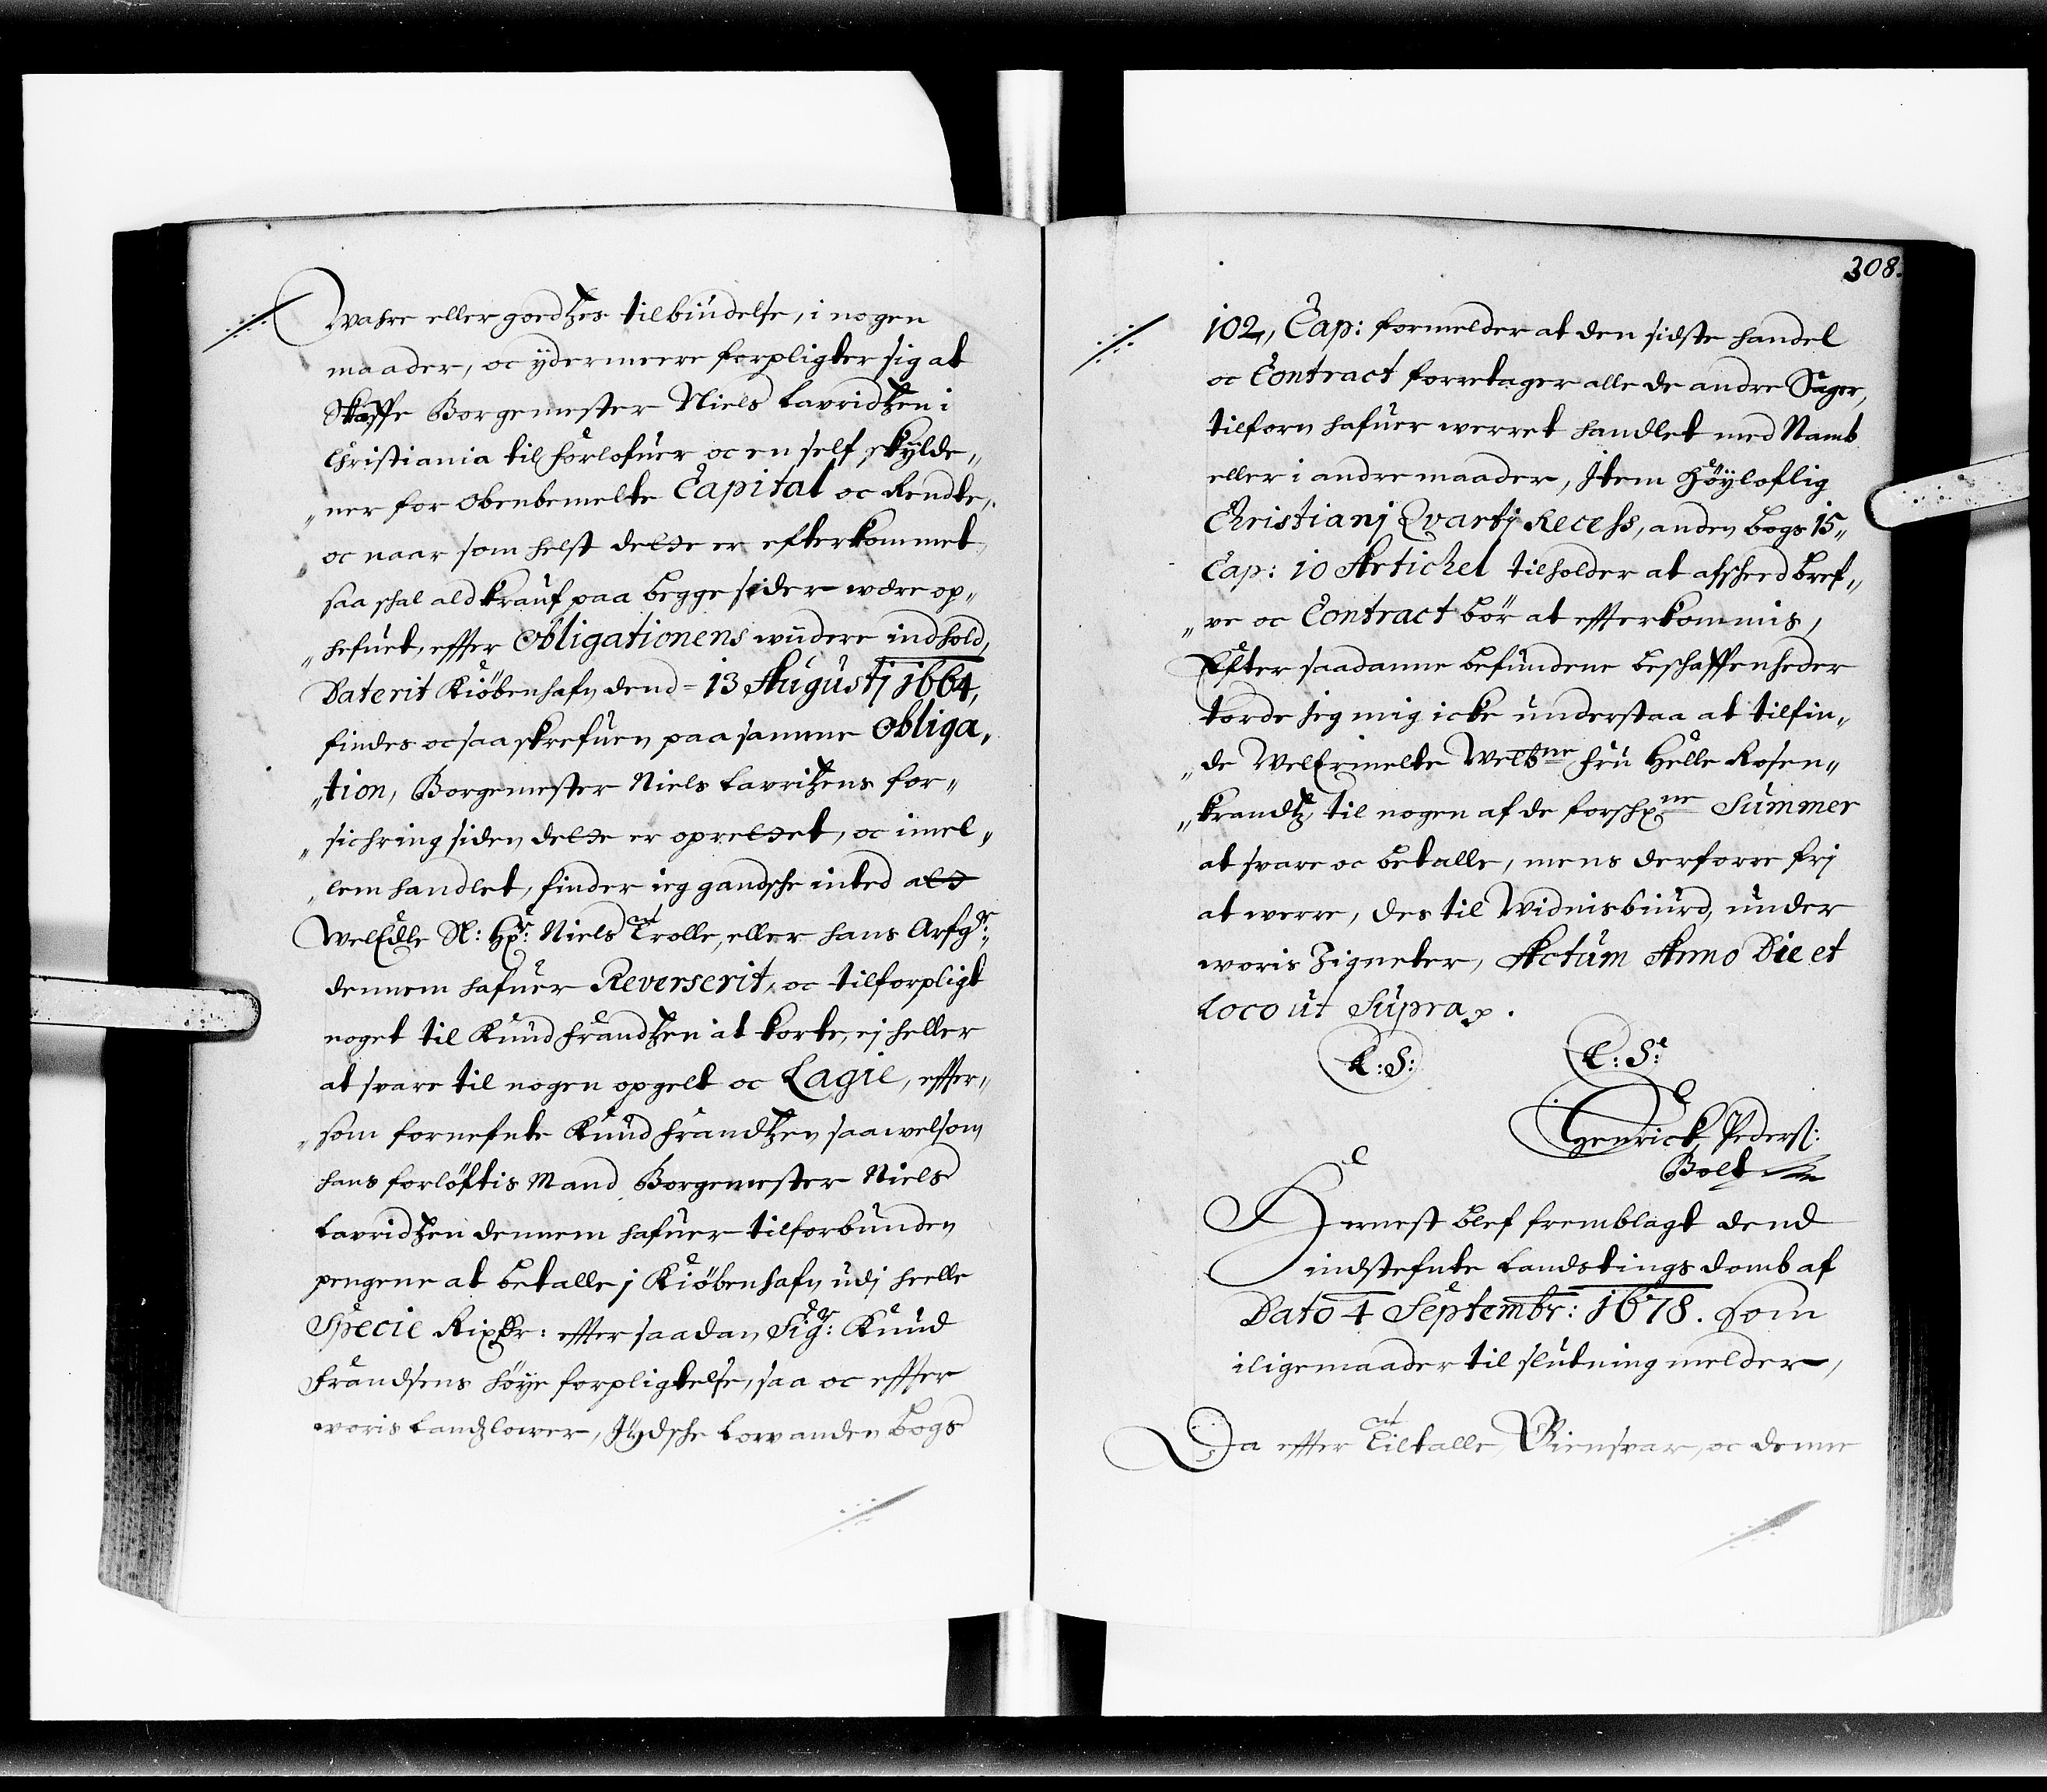 Wahre eller goedtzes tilbiudelse, i nogen
maader, oc ydermeere forpligter sig at
Skaffe Borgemester Niels Lavridtzen i
Christiania til forlofuer oc en self skylde„
„ner for obenbemelte Capital oc Rendte,
oc naar som helst dette er efterkommet,
saa schal ald krauf paa begge sider wære op„
„hefuet, effter Obligationens widere indhold,
Daterit Kiöbenhafn dend = 13 Augustj 1664,
findes ocsaa skrefuen paa samme Obliga„
„tion, Borgemester Niels Lavritzens for„
„sichring siden dette er oprettet, oc imel„
„lem handlet, finder ieg gandsche inted at
WelEdle S: Hr: Niels Trolle, eller hans Arfgr:,
dennem hafuer Reverserit, oc tilforpligt
noget til Knud Frandtzen at korte, ej heller
at svare til nogen opgelt oc Lagie, effter„
„som fornefnte Knud Frandtzen saavelsom
hans forlöftis Mand Borgemester Niels
Lavridtzen dennem hafuer tilforbunden
pengene at betalle j Kiöbenhafn udj heelle
Specie Rixdr: effter saadan Sigr: Knud
Frandsens höye forpligtelse, saa oc effter
woris Landzlower, Jydsche Low anden Bogs
308.
102„ Cap: formelder at den sidste handel
oc Contract forretager alle de andre Sager,
tilforn hafuer werret handlet med Namb
eller i andre maader, Item Höyloflig
Christianj Qvartj Recess, anden bogs 15„
Cap: 10 Artichel tilholder at afscheed bref„
„ve oc Contract bör at effterkommis,
Effter saadanne befundene beschaffenheder
torde jeg mig icke understaa at tilfin„
„de Welermelte Welbne Fru Helle Rosen„
„krandtz, til nogen af de forschne Summer
at svare oc betalle, mens derforre frj
at werre, des til Widnisbiurd, under
woris Zigneter, Actum Anno Die et
Loco ut Supra p.
L: S: L: S:
Henrick Peders:
Bolt
Dernest blef fremblagt dend
indstefnte Landstings domb af
Dato 4 Septembr: 1678. som
iligemaader til slutning melder,
Da effter Tiltalle, Giensvar, oc denne